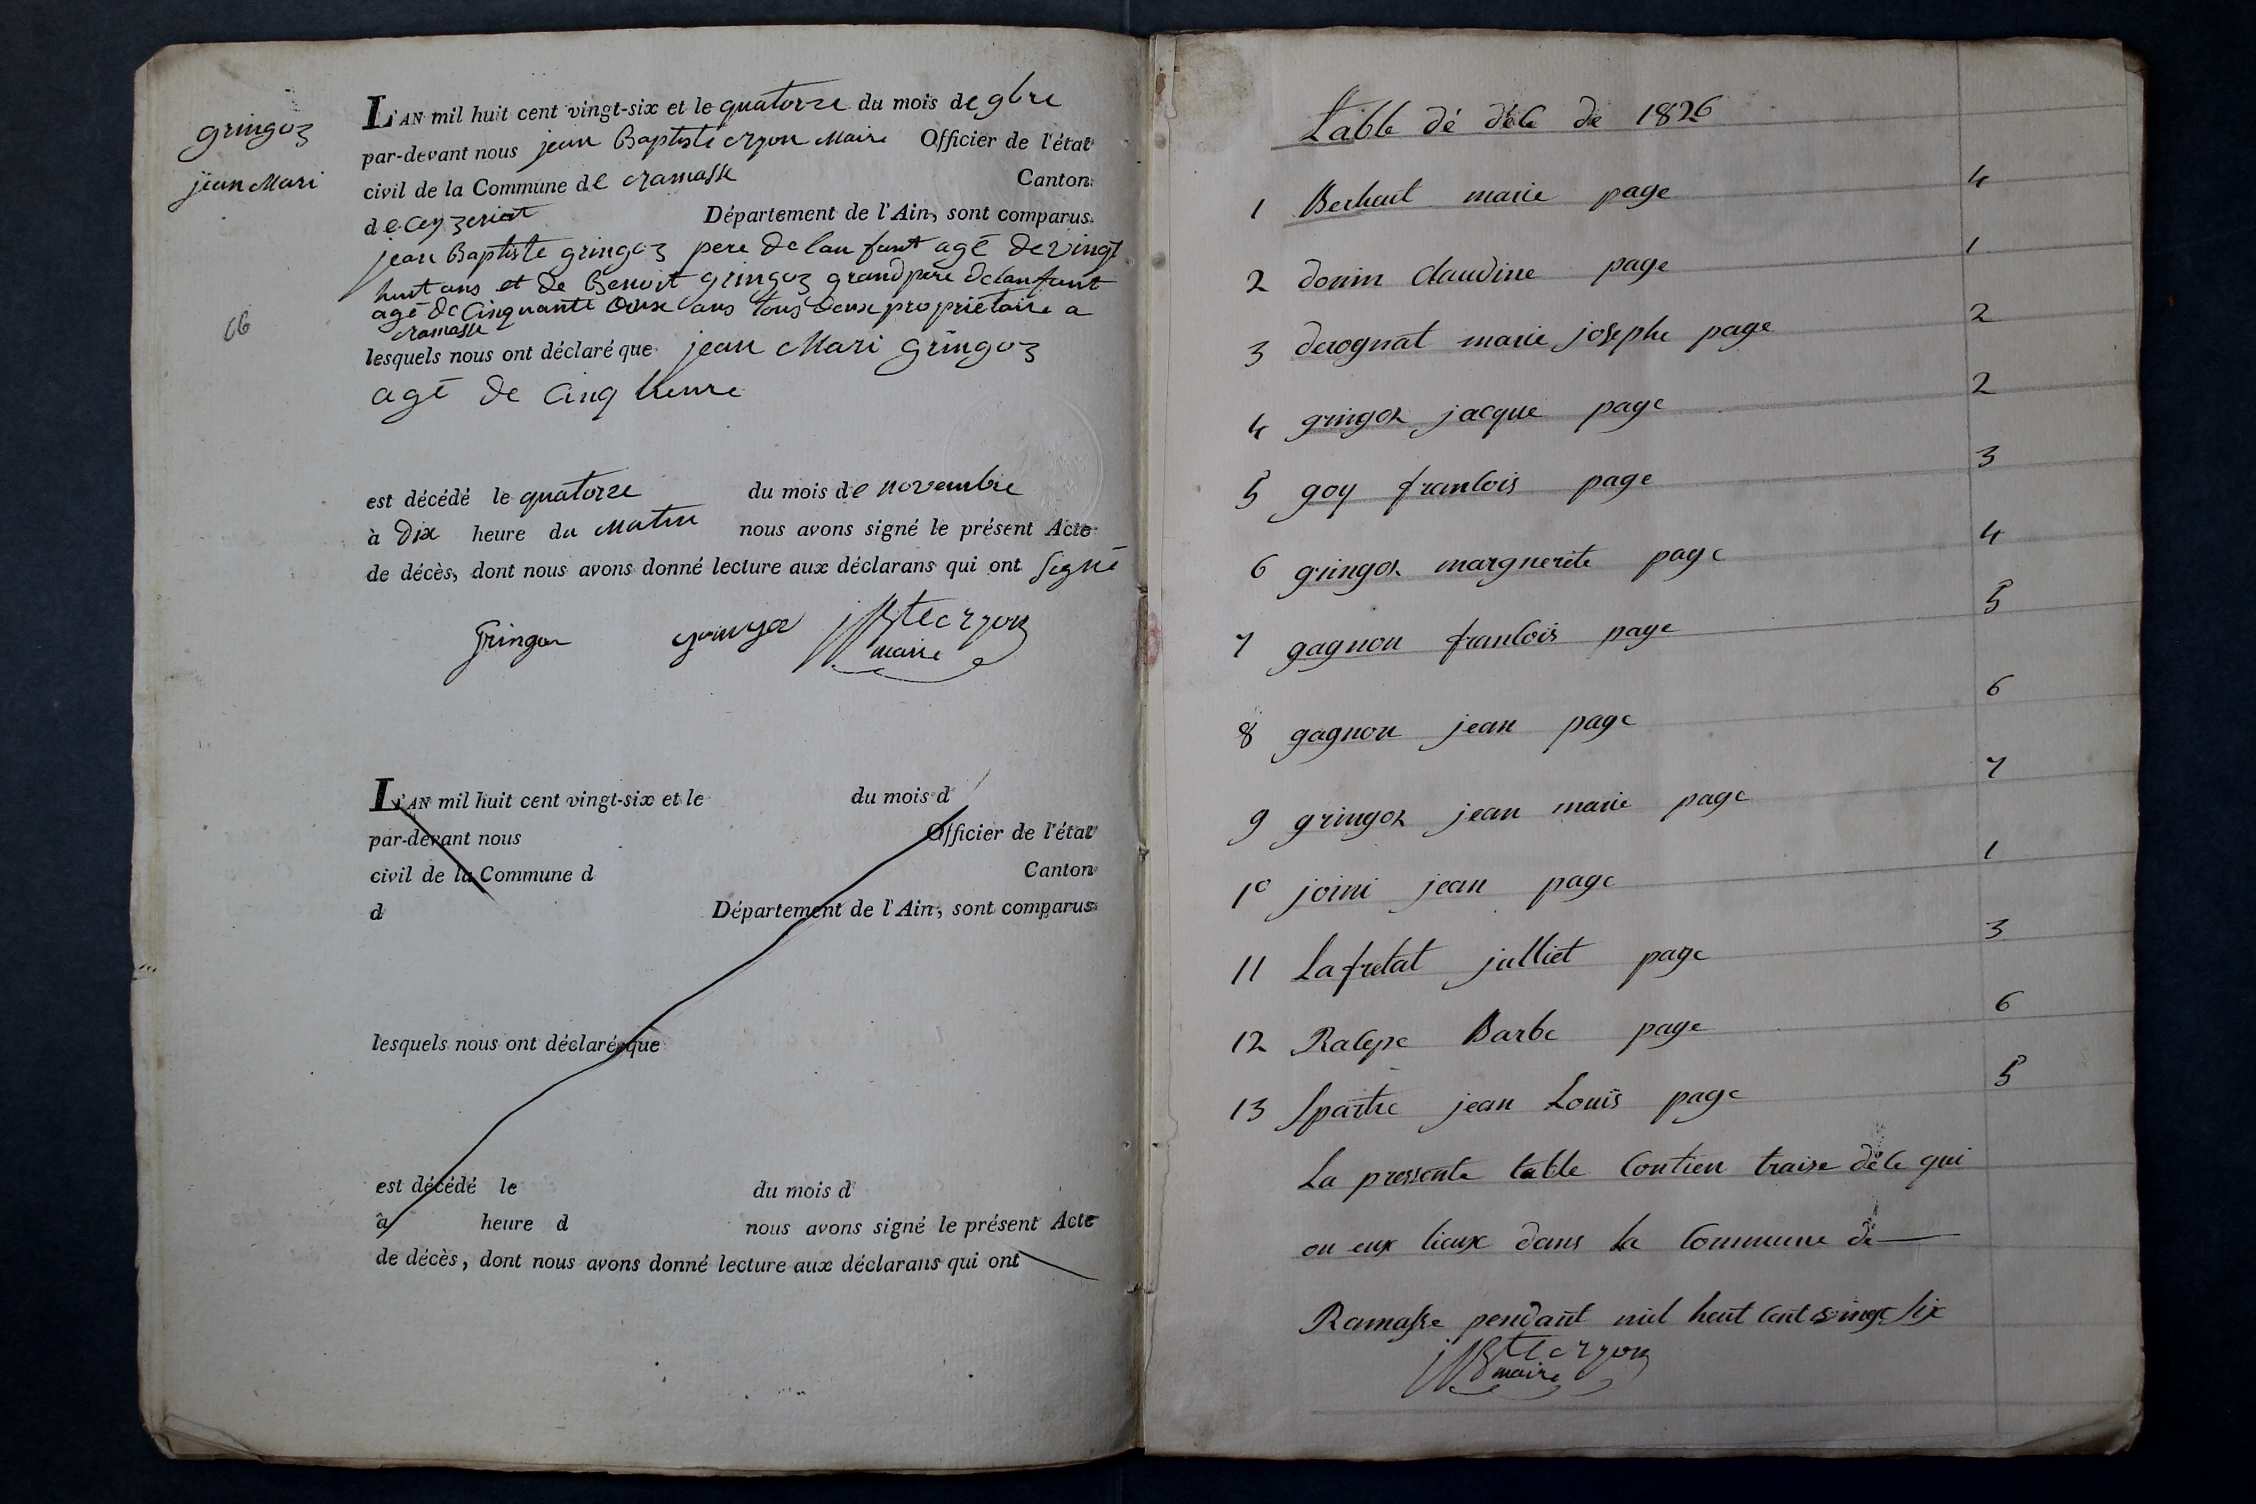 gringoz
jean Mari
66
L'AN mil huit cent vingt-six et le quatorze du mois de 9bre
par-devant nous jean Baptiste Ryon Maire Officier de l'état
civil de la Commune de Ramasse Canton
de Ceyzeriat Département de l'Ain, sont comparus
jean Baptiste gringoz pere de lanfant agé de vingt
huit ans et de Benoit gringoz grandpere de lanfant
agé de Cinquante ans tous deux proprietaire a
Ramasse
lesquels nous ont déclaré que jean Mari gringoz
agé de Cinq heure
est décédé le quatorze du mois de novembre
à Dix heure du Matin nous avons signé le présent Acte
de décès, dont nous avons donné lecture aux déclarans qui ont signé
Gringoz gringoz jBte Ryon
maire
L'AN mil huit cent vingt-six et le du mois d
par-devant nous Officier de l'état
civil de la Commune d Canton
d Département de l'Ain, sont comparus
lesquels nous ont déclaré que
est décédé le du mois d
à heure d nous avons signé le présent Acte
de décès, dont nous avons donné lecture aux déclarans qui ont
Table dé déle de 1826
1 Berhaut marie page 4
2 donin claudine page 1
3 derognat marie josephe page 2
4 gringoz jacque page 2
5 goy francois page 3
6 gringoz marguerite page 4
7 gagnon francois page 5
8 gagnon jean page 6
9 gringoz jean marie page 7
10 joini jean page 1
11 Lafretat julliet page 3
12 Ralepe Barbe page 6
13 jean Louis page 5
La pressente table Contien traise déle qui
on eux lieux dans la Commune de
Ramasse pendant mil heut cent vingt six
jBte Ryon
maire